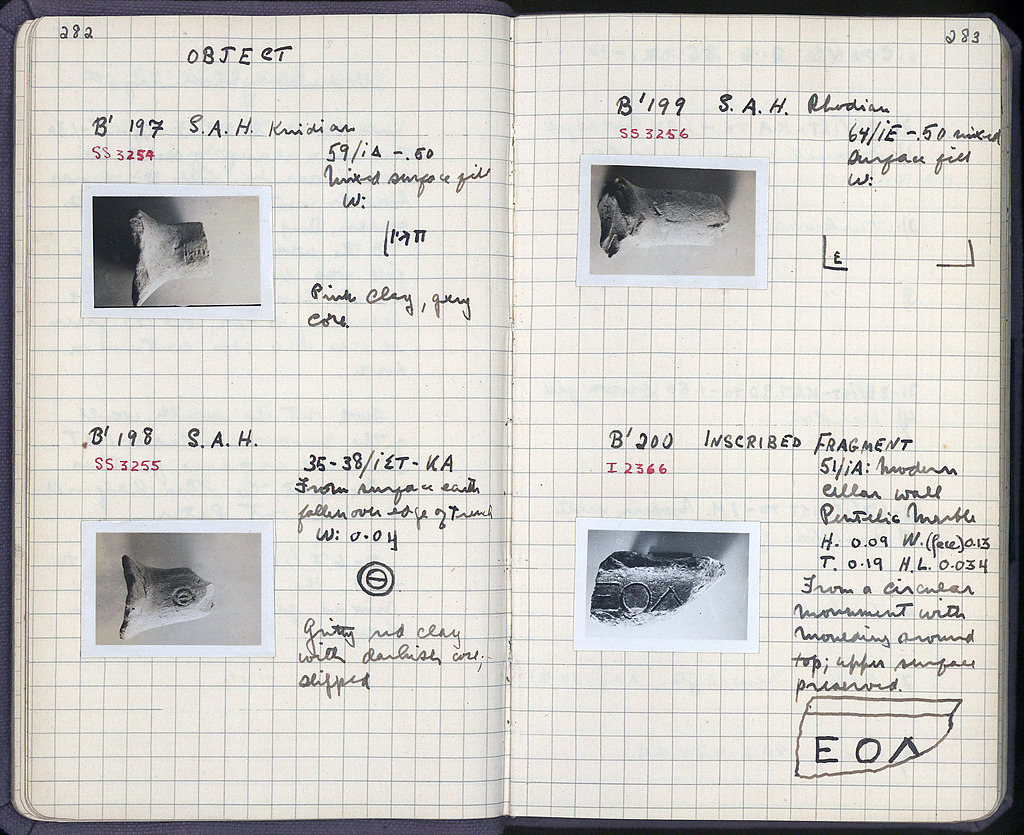 282
OBJECT
B' 197 S.A.H. Knidian
SS 3254
59/ΙΔ -.50
Mixed surface fill
W:
Pink clay, grey
core.
B' 198 S.A.H.
SS 3255
35-38/ΙΣΤ-ΚΑ
From surface earth
fallen over edge of trench
W: 0.04
Θ
Gritty red clay
with darkish core,
slipped
283
B' 199 S.A.H. Rhodian
SS 3256
64/ΙΕ -.50 mixed
surface fill
W:
E
B' 200 INSCRIBED FRAGMENT
I 2366
51/ΙΑ: Modern
cellar wall
Pentelic Marble
H. 0.09 W.(face) 0.13
T. 0.19 H.L. 0.034
From a circular
monument with
moulding around
top; upper surface
preserved.
ΕΟΛ